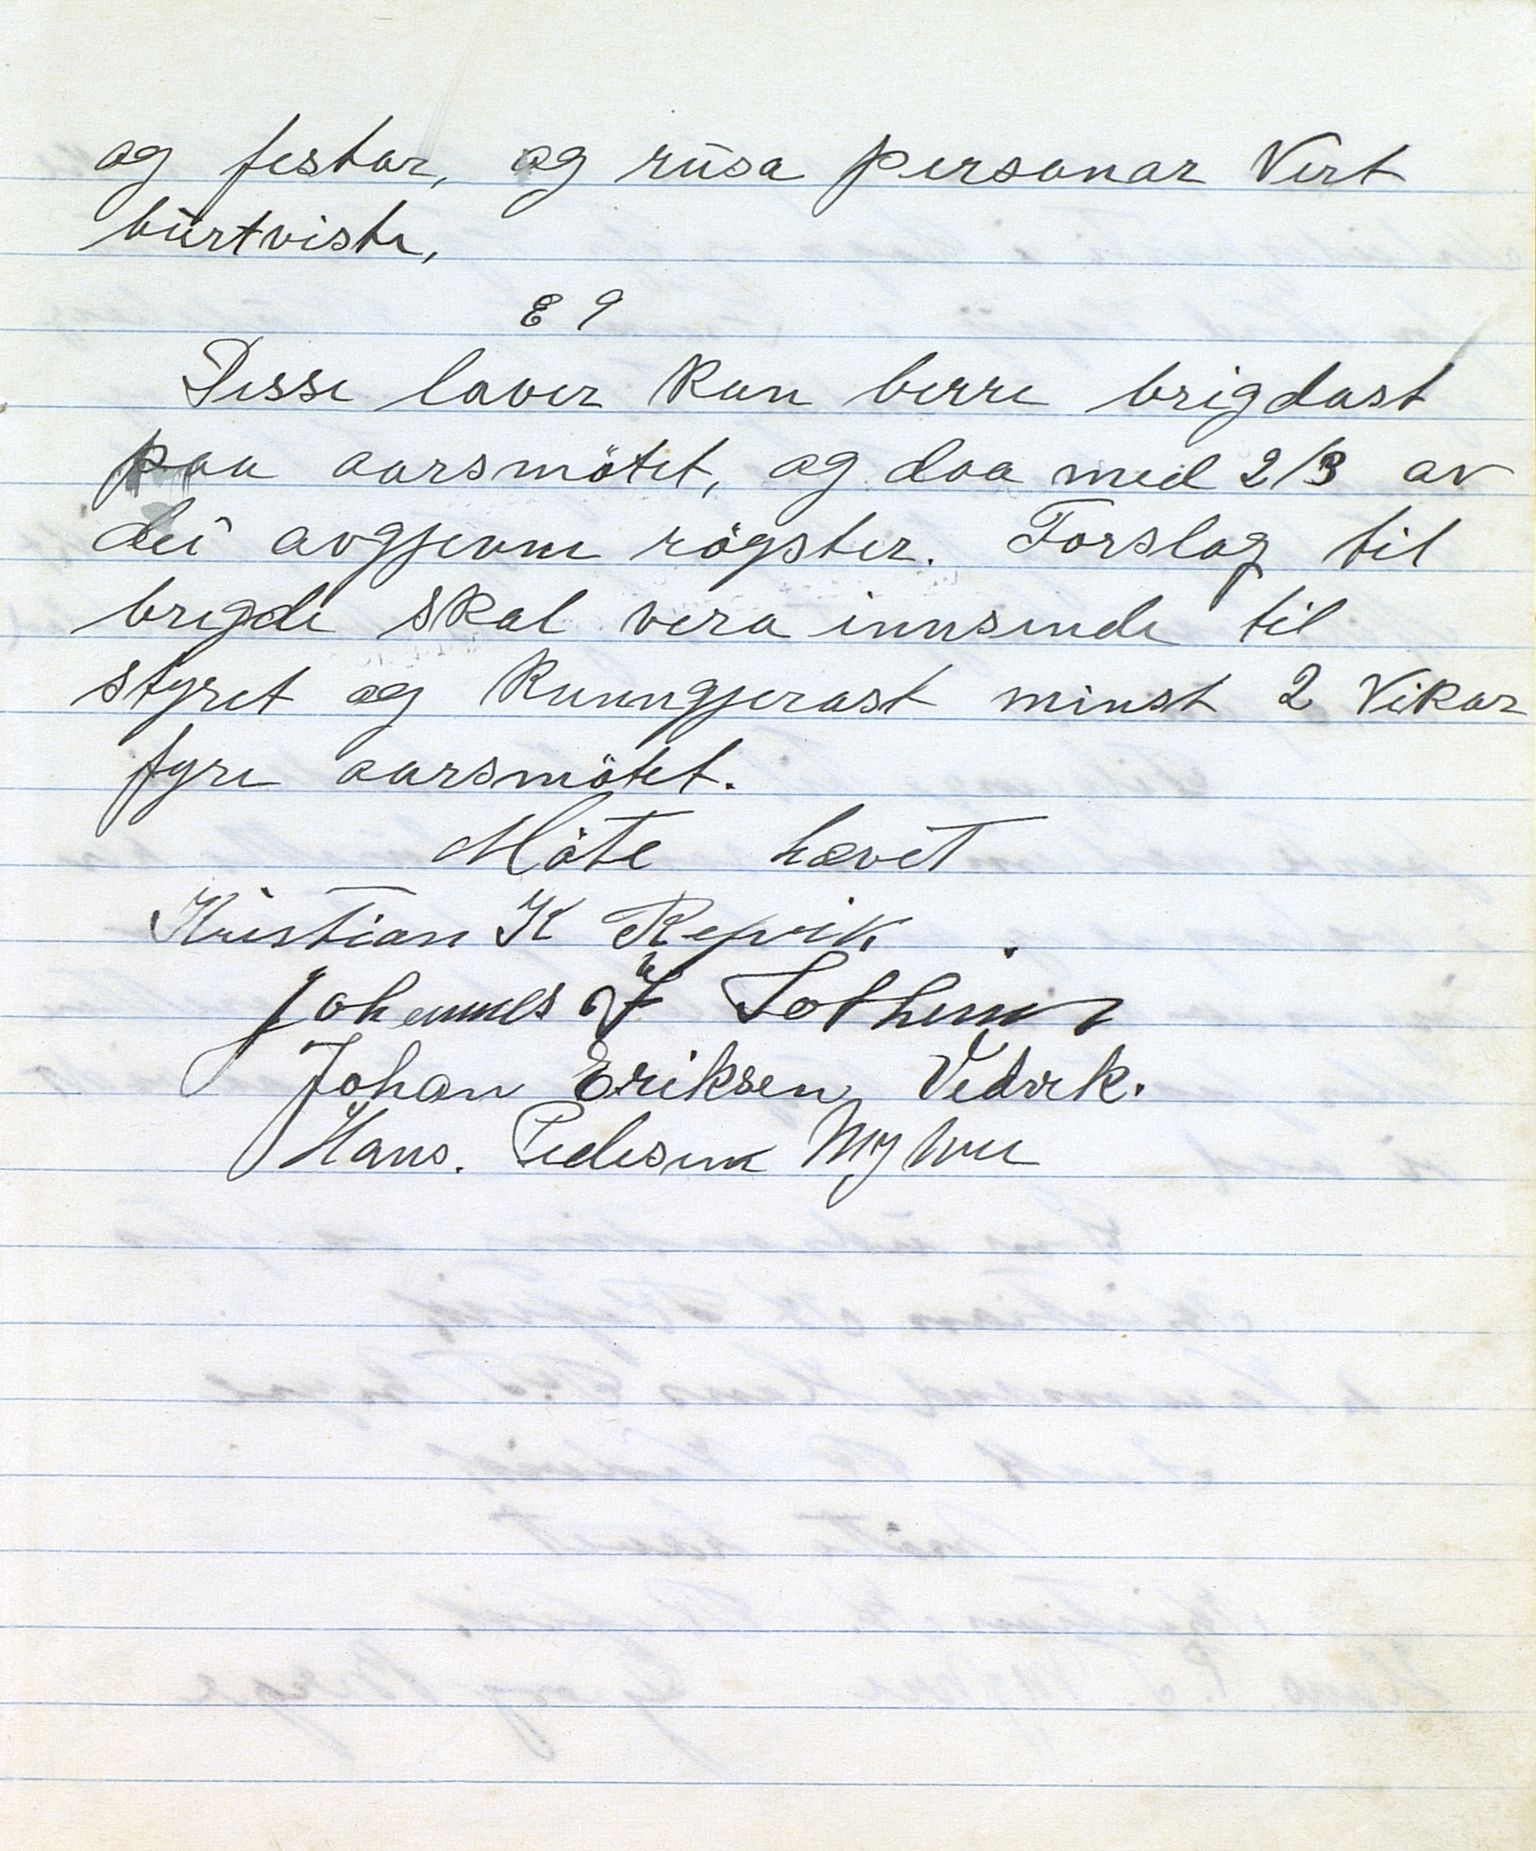 og festar, og rusa personar Vert
burtviste,
§ 9
Desse laver kan berre brigdast
paa aarsmötet, og daa med 2/3 av
dei avgjevne rögster. Forslag til
brigde skal vera innsende til
styret og kunngjerast minst 2 Vikar
fyre aarsmötet.
Möte hævet
Kristian K Repvik
Johannes J Solheim
Johan Eriksen Vedvik.
Hans. Pedersen Myhre